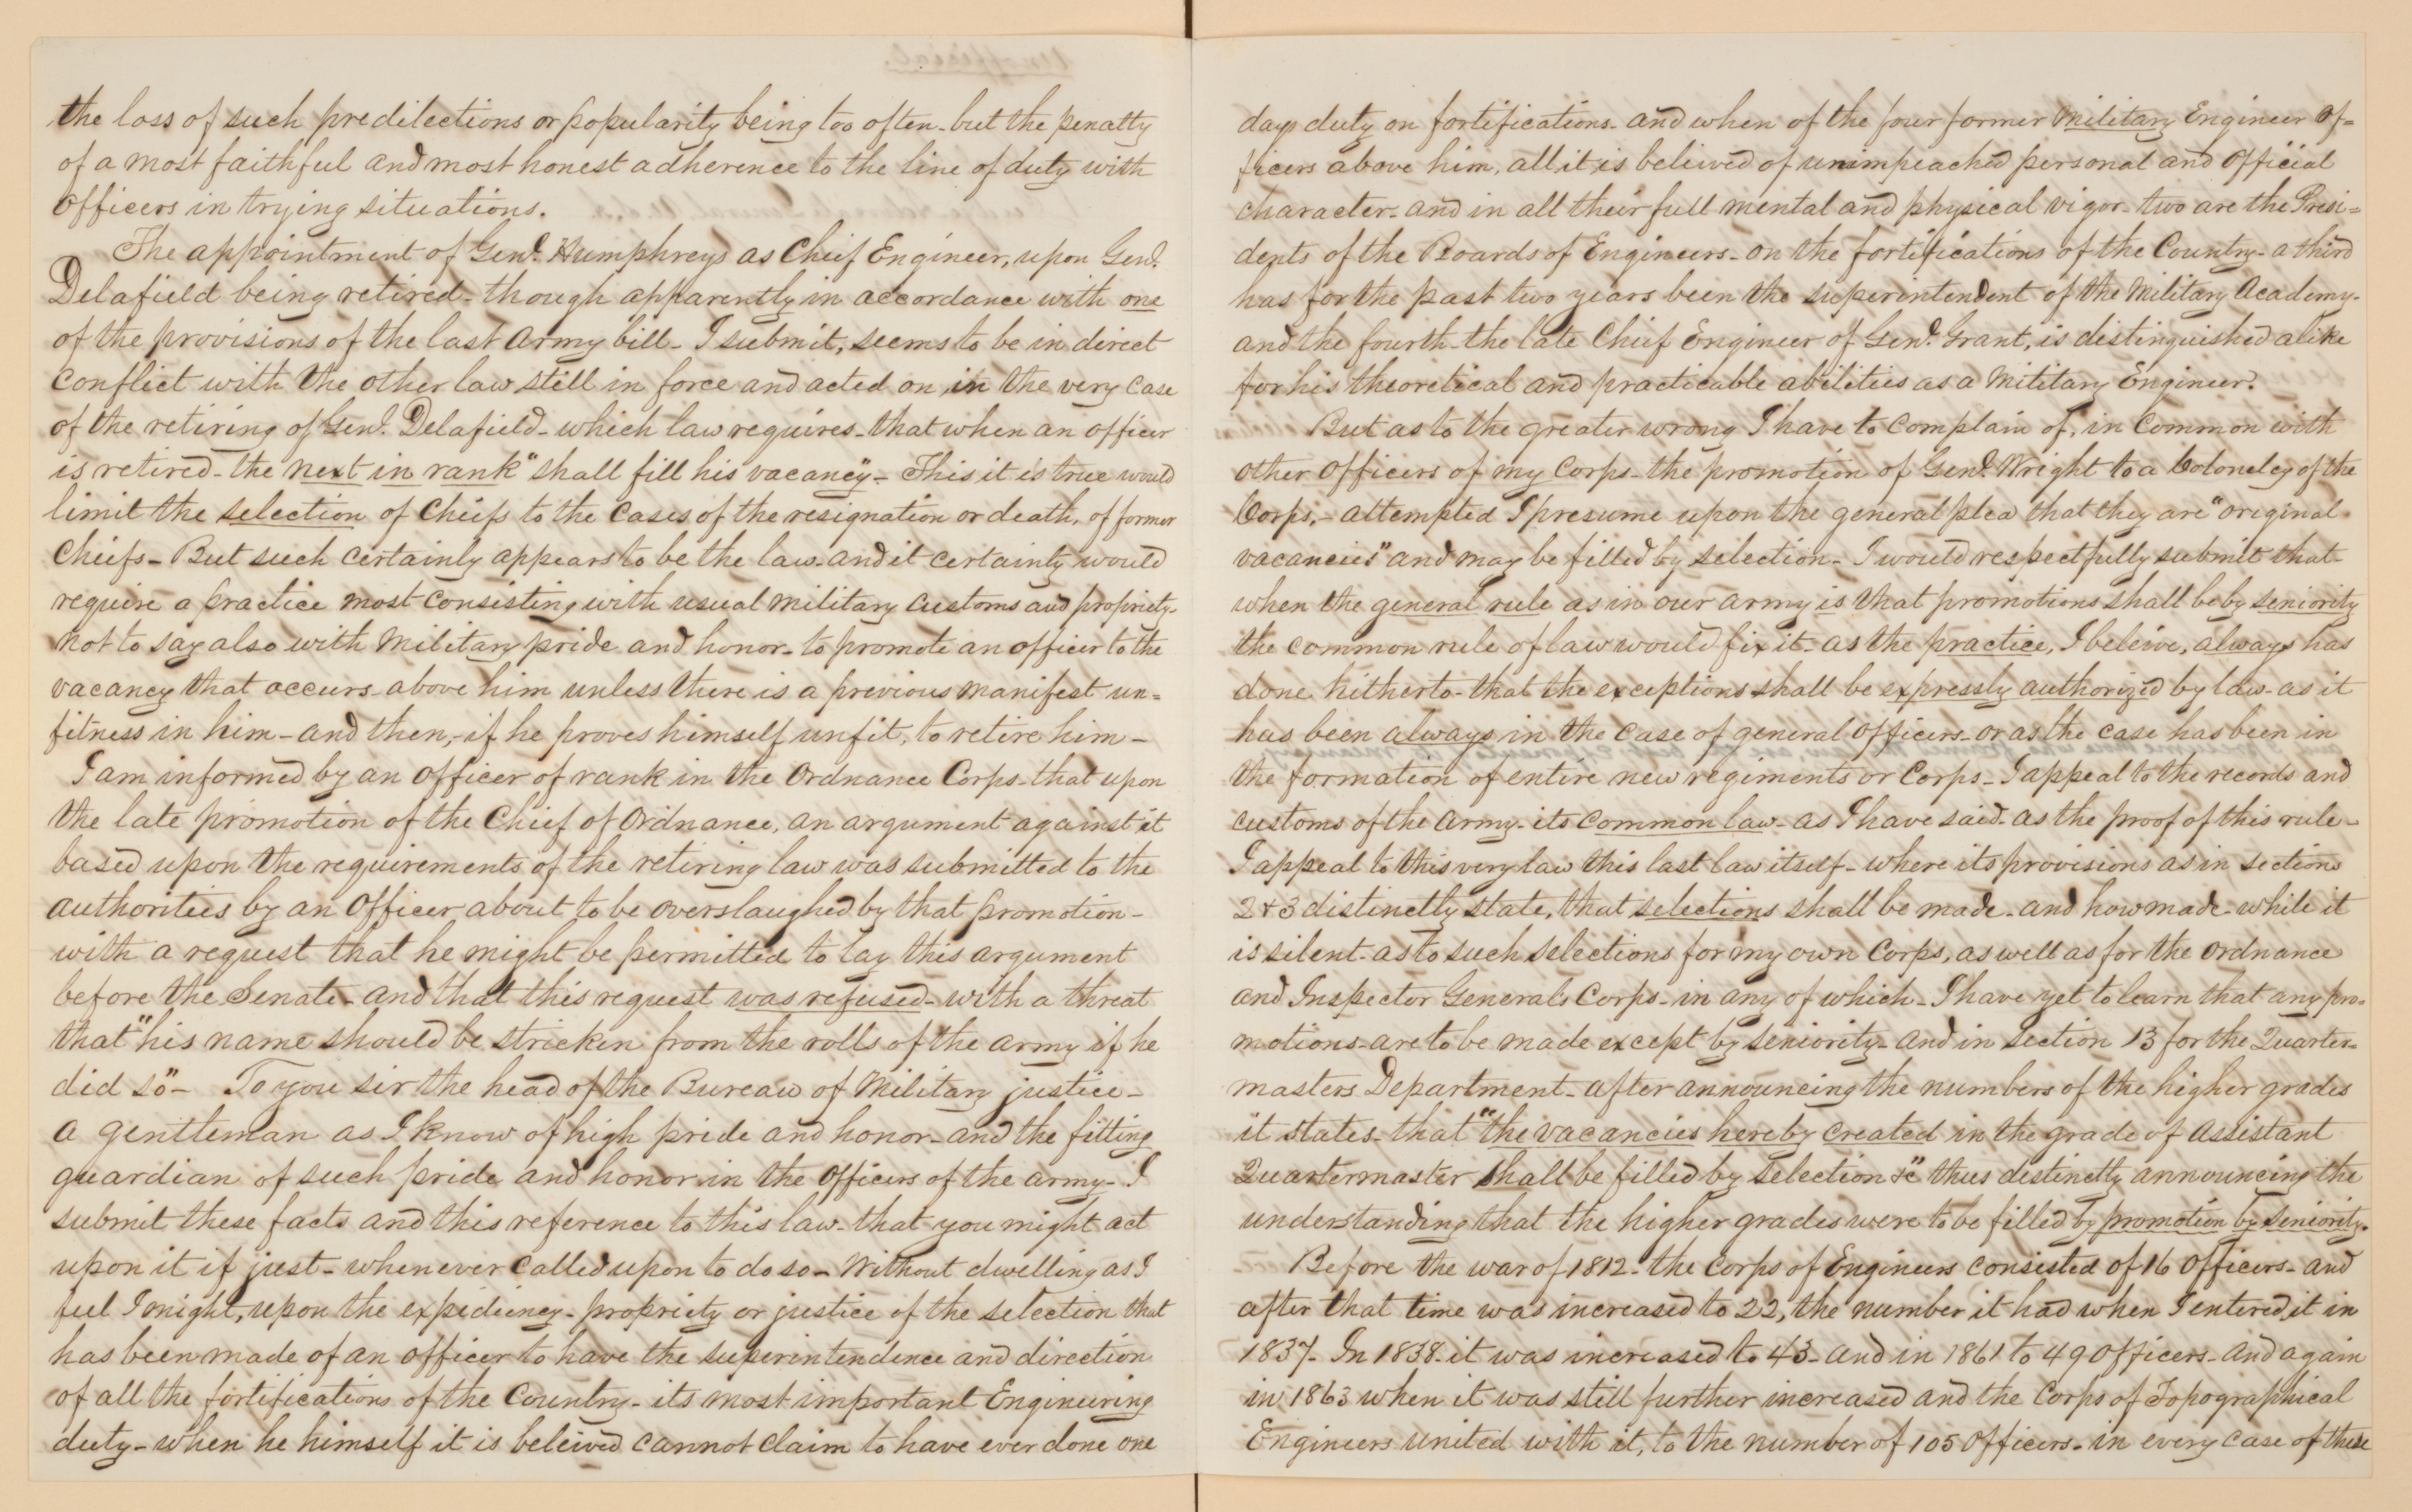 the loss of such predilections or popularity being too often - but the penalty
of a most faithful and most honest adherence to the line of duty with
officers in trying situations.
The appointment of Genl. Humphreys as Chief Engineer, upon Genl.
Delafield being retired - though apparently in accordance with one
of the provisions of the last Army bill - I submit, seems to be in direct
conflict with the other law still in force and acted on in the very case
of the retiring of Genl. Delafield - which law requires - that when an officer
is retired - the next in rank "shall fill his vacancy" - This it is true would
limit the selection of Chiefs to the cases of the resignation or death, of former
Chiefs - But such certainly appears to be the law - and it certainly would
require a practice most consisting with usual military customs and propriety -
not to say also with military pride and honor - to promote an officer to the
vacancy that occurs - above him unless there is a previous manifest un=
fitness in him - and then, - if he proves himself unfit, to retire him -
I am informed by an officer of rank in the Ordnance Corps - that upon
the late promotion of the Chief of Ordnance, an argument against it
based upon the requirements of the retiring law was submitted to the
authorities by an officer about to be overslaughed by that promotion -
with a request that he might be permitted to lay this argument
before the Senate - and that this request was refused - with a threat
that "his name should be stricken from the rolls of the army if he
did so" - To you sir the head of the Bureau of Military justice -
a gentleman as I know of high pride and honor - and the fitting
guardian of such pride and honor in the officers of the army - I
submit these facts and this reference to this law - that you might act
upon it if just - whenever called upon to do so - Without dwelling as I
feel I might, upon the expediency - propriety or justice of the selection that
has been made of an officer to have the superintendence and direction
of all the fortifications of the Country - its most important Engineering
duty - when he himself it is beleived cannot claim to have ever done one
days duty on fortifications - and when of the four former military Engineer of=
ficers above him, all it is beleived of unimpeached personal and official
character - and in all their full mental and physical vigor - two are the Presi=
dents of the Boards of Engineers - on the fortifications of the Country - a third
has for the past two years been the superintendent of the Military Academy -
and the fourth - the late Chief Engineer of Genl. Grant, is distinguished alike
for his theoretical and practicable abilities as a Military Engineer.
But as to the greater wrong I have to complain of, in common with
other officers of my Corps - the promotion of Genl. Wright to a Colonelcy of the
Corps, - attempted I presume upon the general plea that they are "original
vacancies" and may be filled by selection - I would respectfully submit that
when the general rule as in our army is that promotions shall be by seniority
the common rule of law would fix it - as the practice, I beleive, always has
done hitherto - that the exceptions shall be expressly authorized by law - as it
has been always in the case of general officers - or as the case has been in
the formation of entire new regiments or Corps - I appeal to the records and
customs of the Army - its common law - as I have said - as the proof of this rule -
I appeal to this very law this last law itself - where its provisions as in sections
2 & 3 distinctly state, that selections shall be made - and how made - while it
is silent - as to such selections for my own Corps, as well as for the Ordnance
and Inspector Generals Corps - in any of which - I have yet to learn that any pro=
motions - are to be made except by seniority - and in section 13 for the Quarter=
masters Department - after announcing the numbers of the higher grades
it states - that "the vacancies hereby created in the grade of Assistant
Quartermaster shall be filled by selection &c" thus distinctly announcing the
understanding that the higher grades were to be filled by promotion by seniority.
Before the war of 1812 - the Corps of Engineers consisted of 16 officers - and
after that time was increased to 22, the number it had when I entered it in
1837 - In 1838 it was increased to 43 - and in 1861 to 49 officers - and again
in 1863 when it was still further increased and the Corps of Topographical
Engineers united with it, to the number of 105 officers - in every case of these